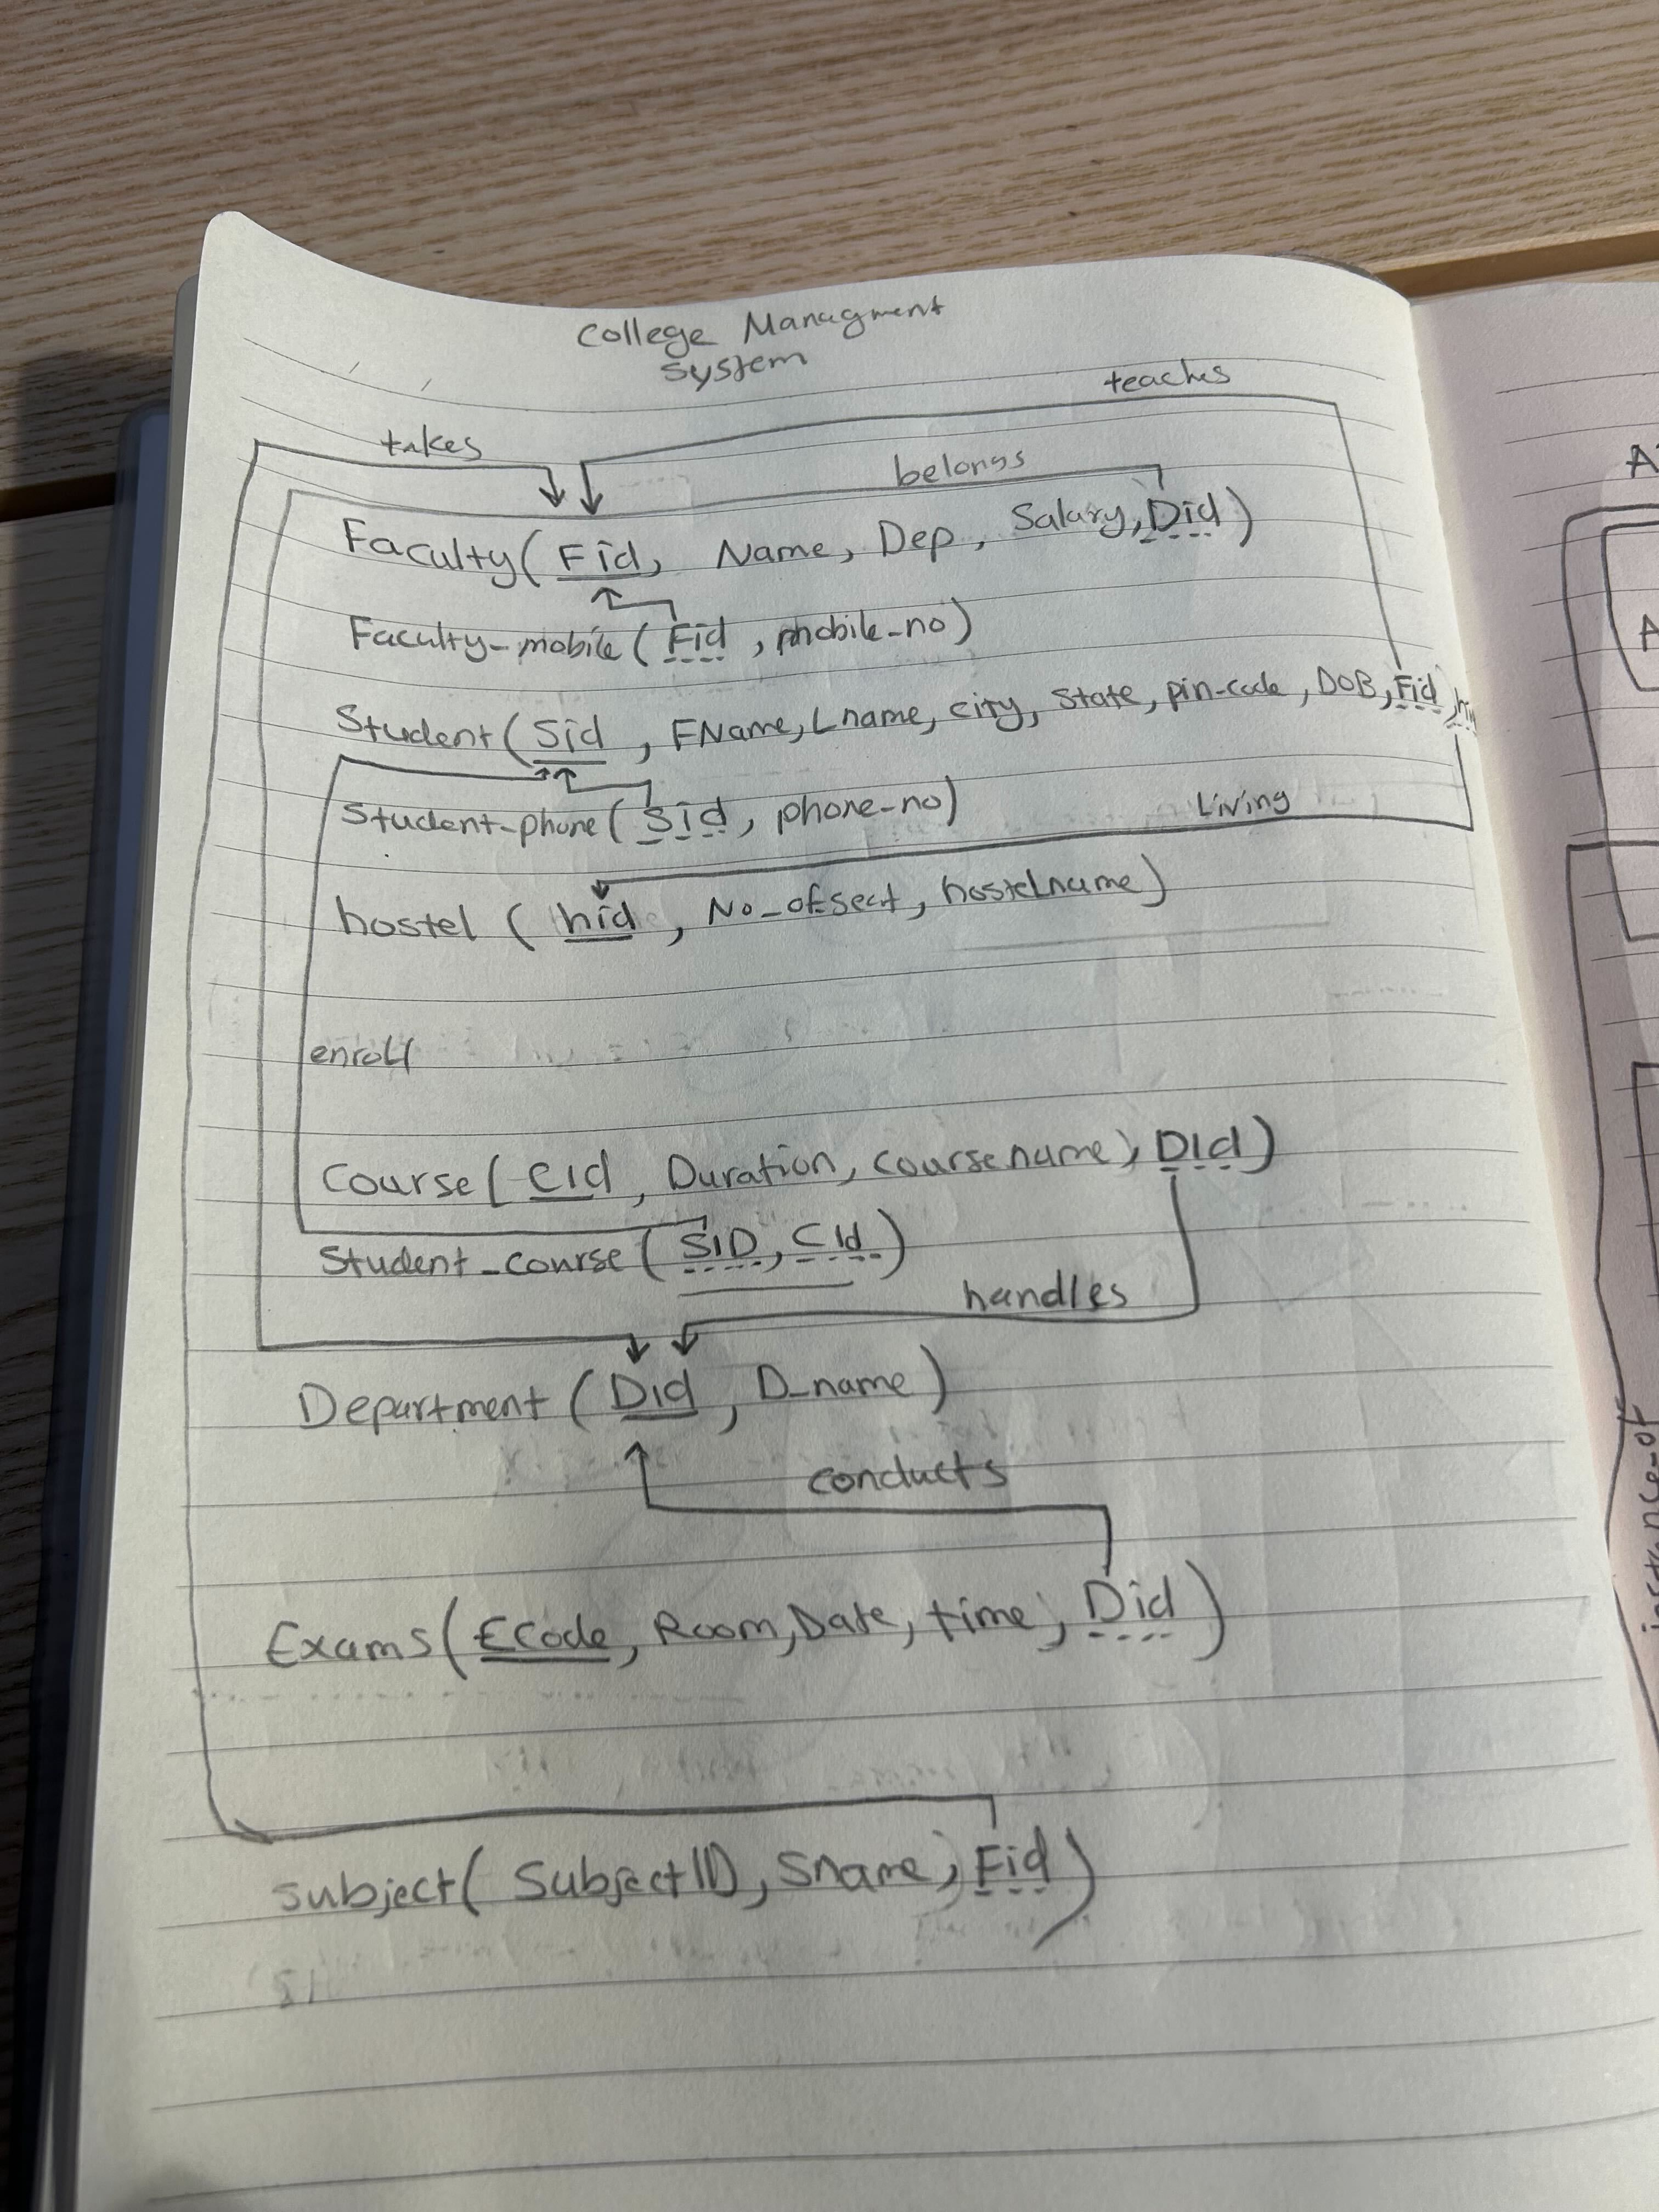 College Managment
System
teaches
takes
belongs
Faculty( Fid, Name, Dep, Salary, Did)
Faculty-mobile( Fid, mobile-no)
Student( Sid, FName, Lname, city, State, pin-code, DOB, Fid,
Student-phone( Sid, phone-no)
Living
hostel ( hid, No_of seat, hostelname)
enroll
Course( CId, Duration, coursename, DId)
Student_course( SID, CId)
handles
Department( DId, D_name)
conducts
Exams( ECode, Room, Date, time, Did)
Subject( SubjectID, Sname, Fid)